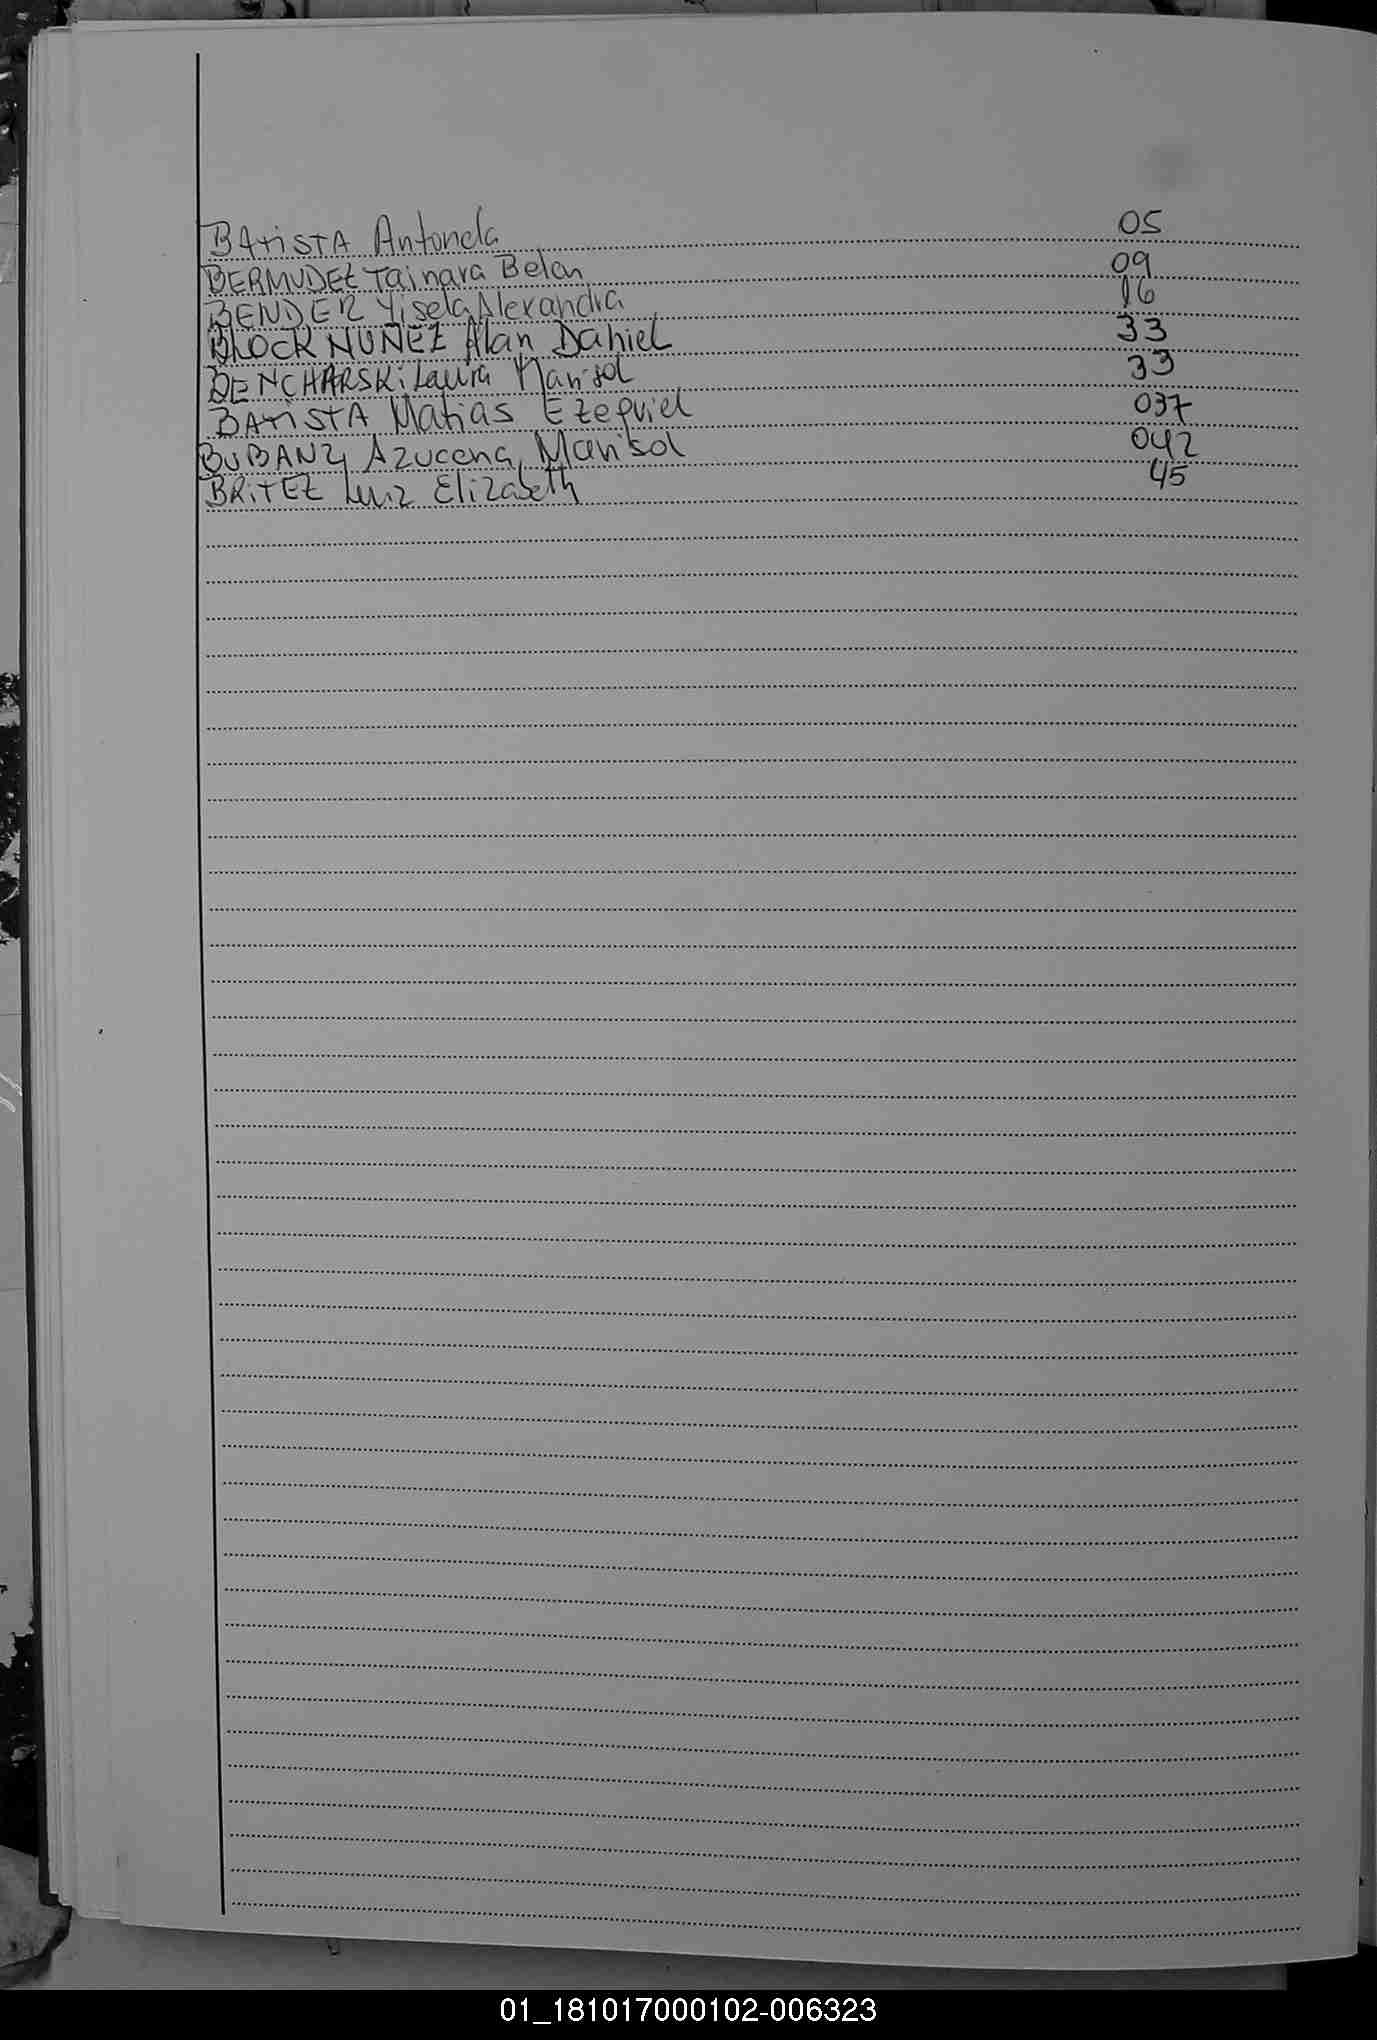 BATISTA Antonela 05
BERMUDEZ Tainara Belen 09
BENDER Yisela Alexandra 16
BLOCK NUÑEZ Alan Daniel 33
BENCHARSKI Laura Marisol 33
BATISTA Matias Ezequiel 037
BUBANZ, Azucena, Marisol 042
BRITEZ Luiz Elizabeth 45
01_181017000102-006323